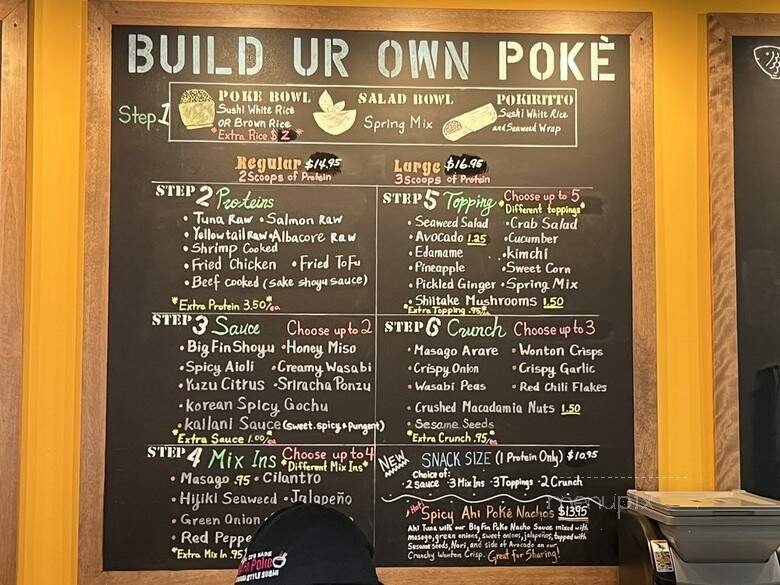 BUILD UR OWN POKÈ
Step 1
POKE BOWL
Sushi White Rice
OR Brown Rice
*Extra Rice $2
SALAD BOWL
Spring Mix
POKIRITTO
Sushi White Rice
and Seaweed Wrap
Regular $14.95
2 Scoops of Protein
Large $16.95
3 Scoops of Protein
STEP 2 Proteins
• Tuna Raw • Salmon Raw
• Yellowtail Raw • Albacore Raw
• Shrimp Cooked
• Fried Chicken • Fried ToFu
• Beef cooked (sake shoyu sauce)
*Extra Protein 3.50/ea
STEP 3 Sauce Choose up to 2
• Big Fin Shoyu • Honey Miso
• Spicy Aioli • Creamy Wasabi
• Yuzu Citrus • Sriracha Ponzu
• Korean Spicy Gochu
• Kailani Sauce (sweet. spicy & Pungent)
*Extra Sauce 1.00/ea
STEP 4 Mix Ins Choose up to 4
*Different Mix Ins*
• Masago .95 • Cilantro
• Hijiki Seaweed • Jalapeño
• Green Onion
• Red Peppe
*Extra Mix In .95
STEP 5 Topping Choose up to 5
*Different toppings*
• Seaweed Salad • Crab Salad
• Avocado 1.25 • Cucumber
• Edamame • Kimchi
• Pineapple • Sweet Corn
• Pickled Ginger • Spring Mix
• Shiitake Mushrooms 1.50
*Extra Topping .95/ea
STEP 6 Crunch Choose up to 3
• Masago Arare • Wonton Crisps
• Crispy Onion • Crispy Garlic
• Wasabi Peas • Red Chili Flakes
• Crushed Macadamia Nuts 1.50
• Sesame Seeds
*Extra Crunch .95/ea
NEW SNACK SIZE (1 Protein Only) $10.95
Choice of:
• 2 Sauce • 3 Mix Ins • 3 Toppings • 2 Crunch
Hot! Spicy Ahi Poké Nachos $13.95
Ahi Tuna with our Big Fin Poke Nacho Sauce mixed with
masago, green onions, sweet onions, jalapeños, topped with
Sesame Seeds, Nori, and side of Avocado on our
Crunchy Wonton Crisp. Great for Sharing!
menupix